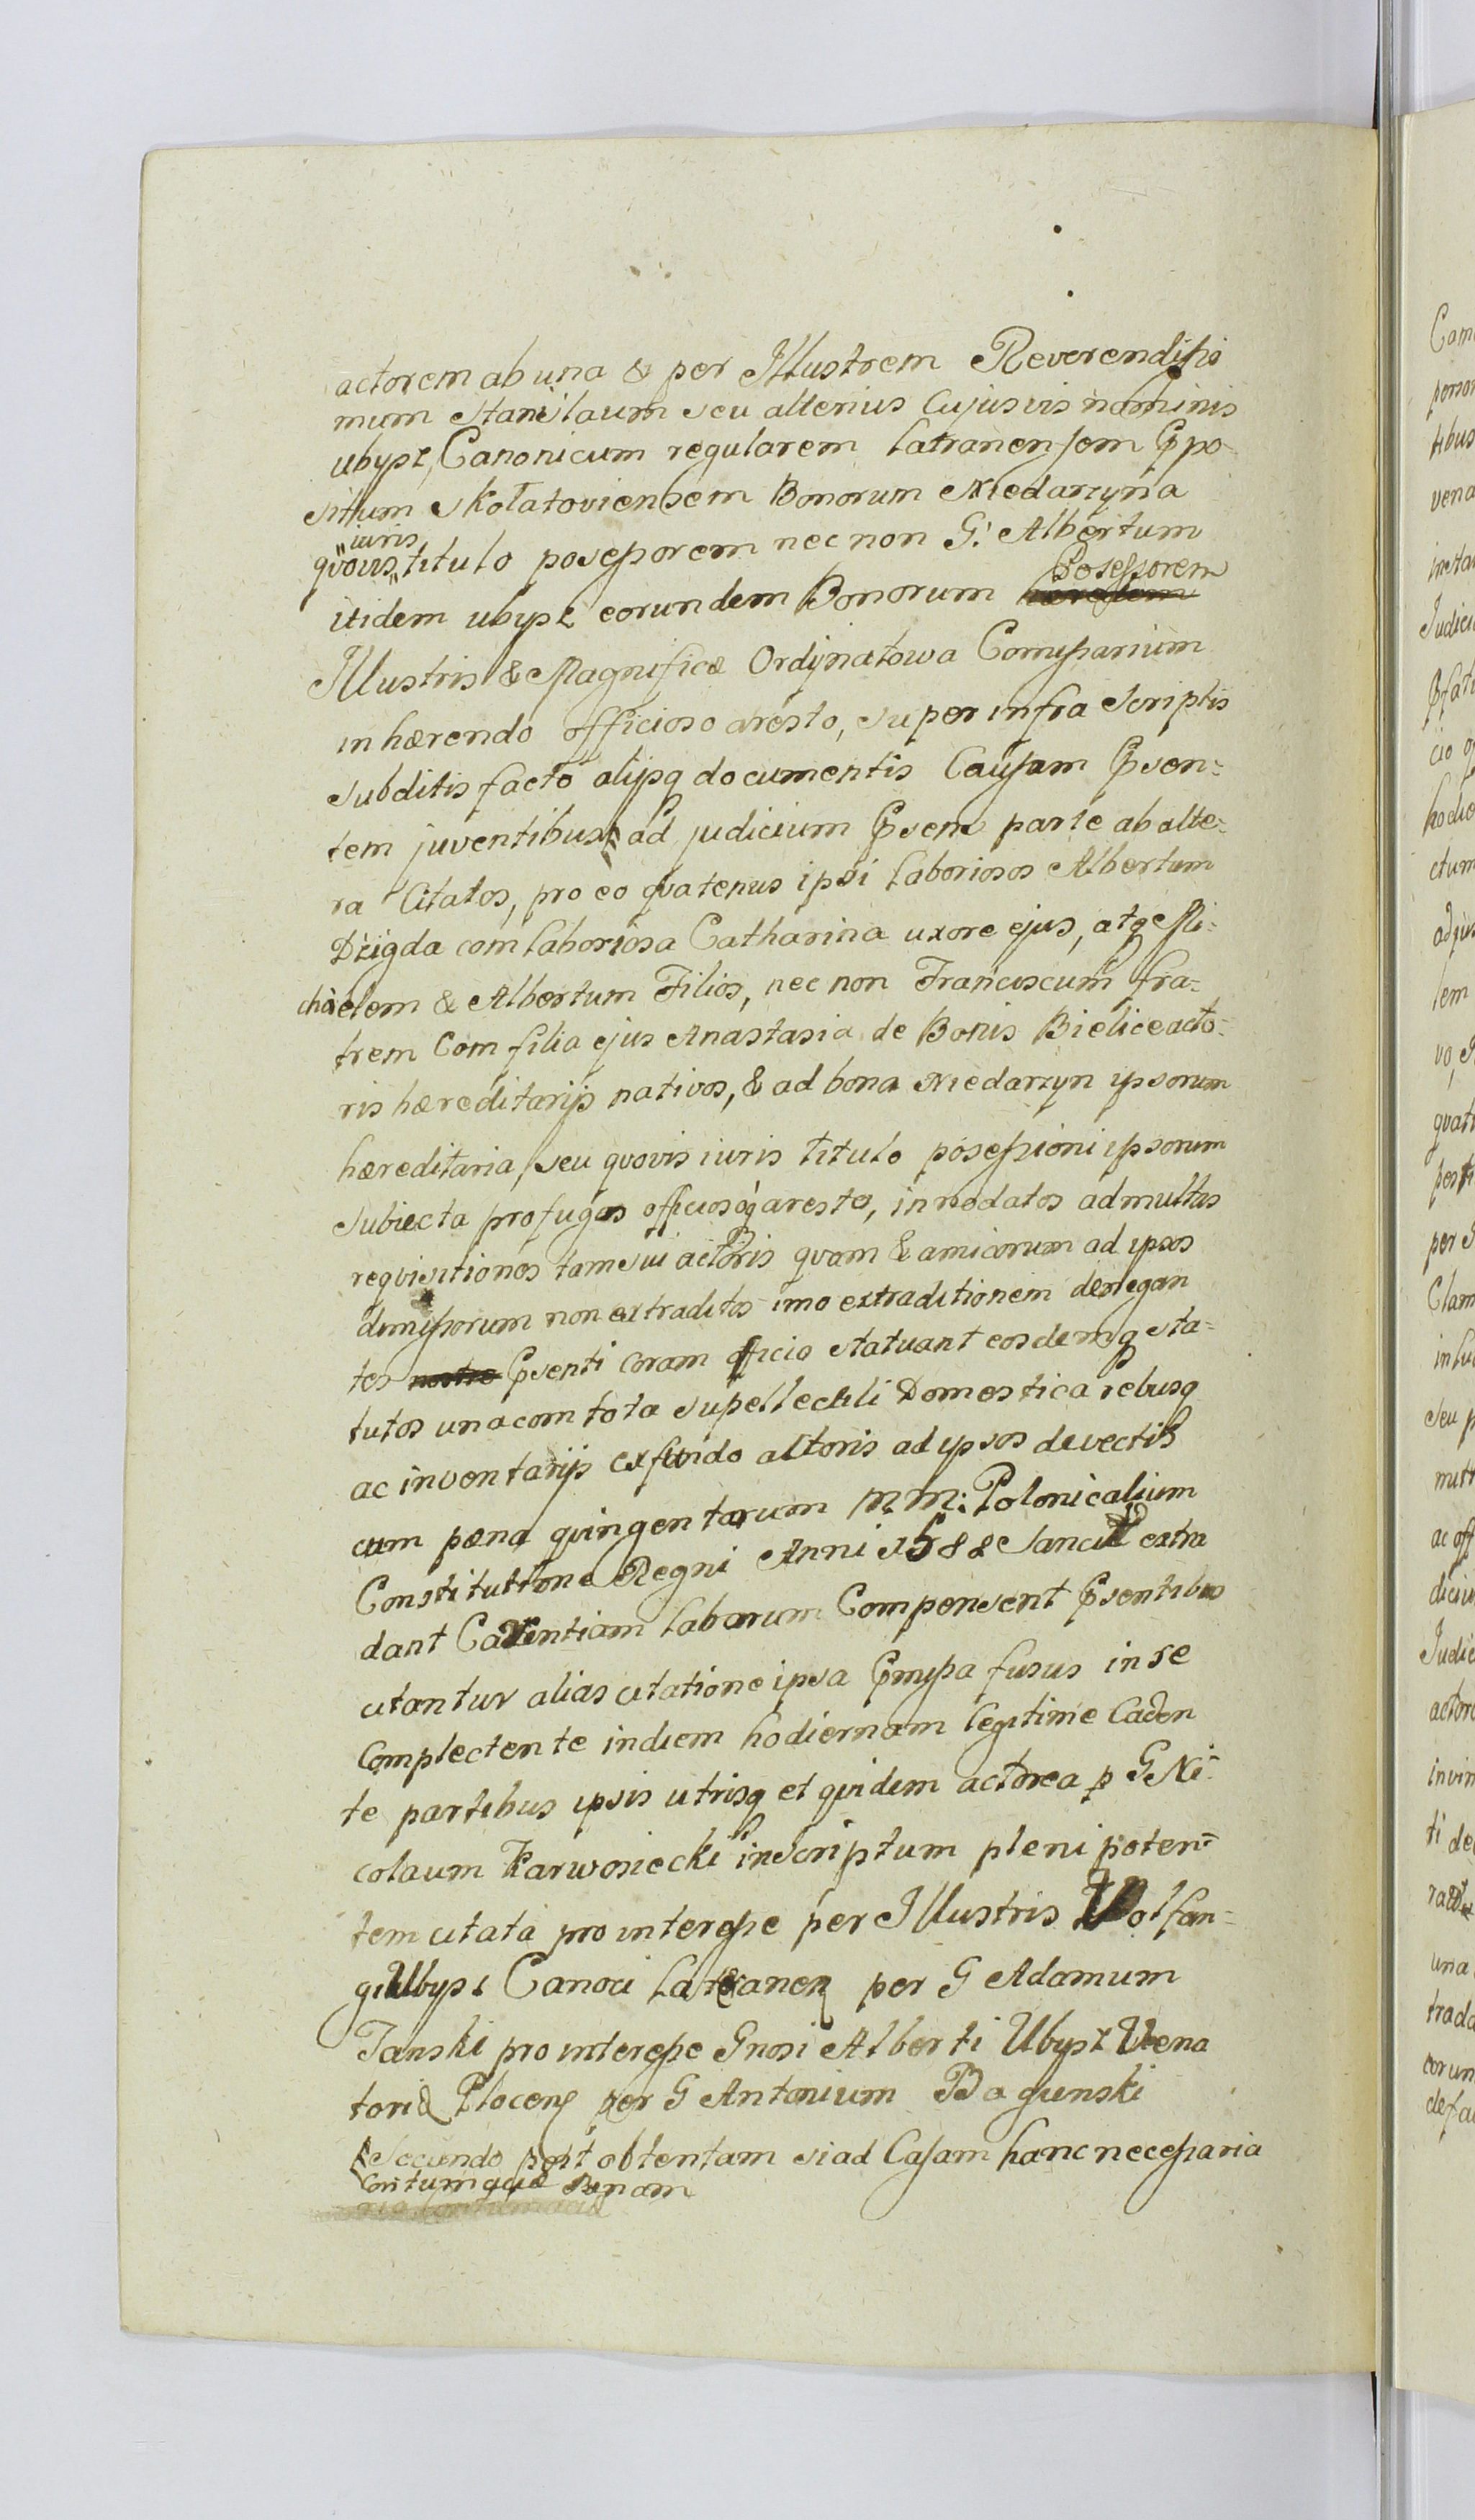 actorem ab una & per Illustrem Reverendissi
mum Stanislaum seu alterius Cujusvis nominis
ubysz, Canonicum regularem Latranensem Ppo
situm Skołatoviensem Bonorum Niedarzyna
iuris
quovis titulo possessorem nec non G. Albertum
Possessorem
itidem ubysz eorundem Bonorum
Illustris & Magnificæ Ordynatowa Comissarium
in hærendo officioso aresto, super infra Scriptis
subditis facto alijsq documentis Causam Psen=
tem juventibus ad judicium Psens parte ab alte=
ra Citatos, pro eo quatenus ipsi Laboriosos Albertum
Dżigda com Laboriosa Catharina uxore ejus, atq Mi=
chaelem & Albertum Filios, nec non Franciscum fra=
trem Com filia ejus Anastasia de Bonis Bielice acto=
ris hæreditarijs nativos, & ad bona Niedarzyn ipsorum
hæreditaria, seu quovis iuris titulo possessioni ipsorum
subiecta profugos officiosoq aresto, innodatos ad multas
requisitiones tam sui actoris quam & amicorum ad ipsos
dimissorum non extraditos imo extraditionem denegan
tes Psenti coram officio statuant eosdemq sta=
tutos una com tota supellectili Domestica rebusq
ac inventarijs ex fundo actoris ad ipsos devectis
cum pæna quingentarum M M: Polonicalium
Constitutione Regni Anni 1588 Sancit extra
dant Carentiam laborum Compensent Psentibus
citantur alias citatione ipsa Pmissa fusus in se
Complectente in diem hodiernam legitime Caden
te partibus ipsis utrisq et quidem actorea p G Ni=
colaum Karwosiecki inscriptum plenipoten=
tem citata pro interesse per Illustris Wolfan=
gi Ubysz Canoci Lateranen per G Adamum
Janski pro interesse Gnosi Alberti Ubysz Vena
toris Plocens per G Antonium Bogunski
Secundo post obtentam si ad Casam hanc necessaria
Contumaciæ Pænam